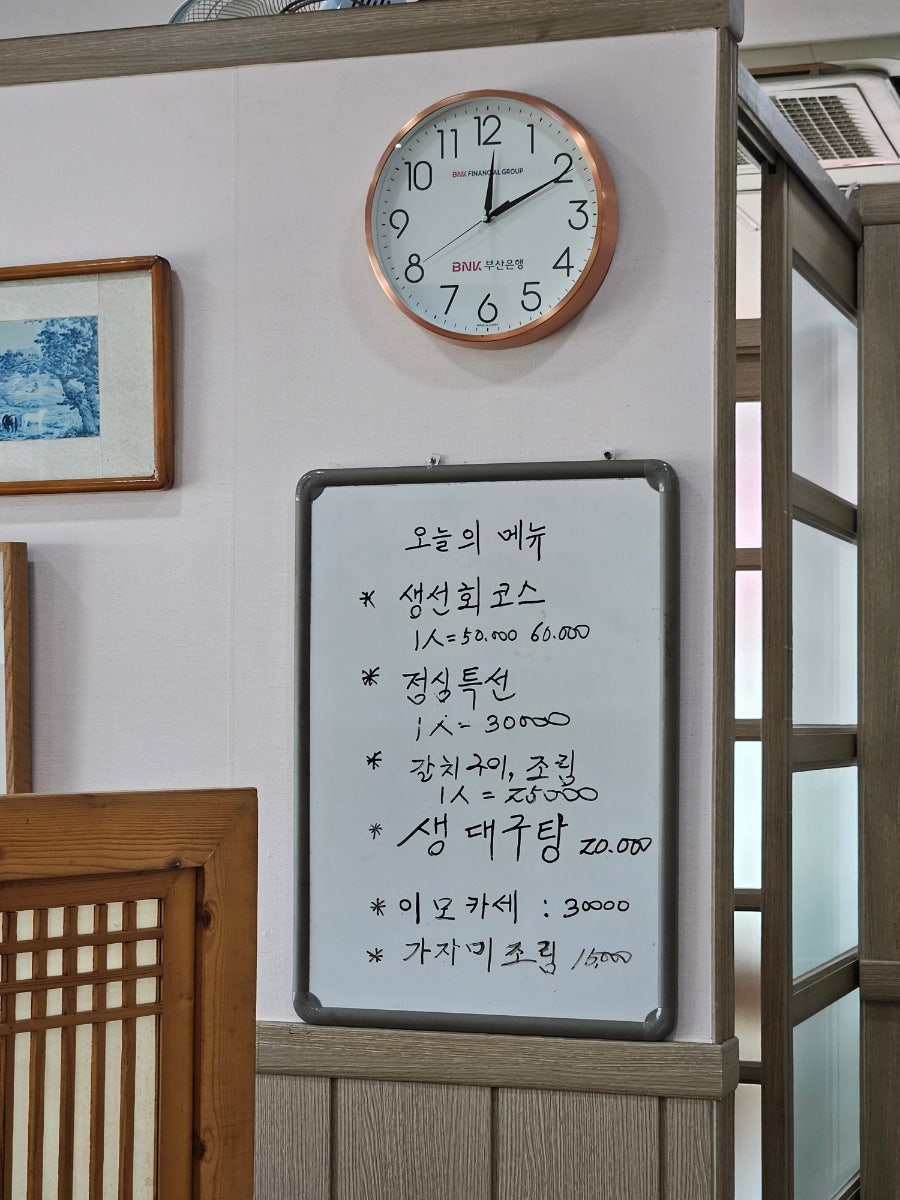 12
11 1
10 2
9 3
8 4
7 5
6
BNK FINANCIAL GROUP
BNK 부산은행
오늘의 메뉴
* 생선회 코스
1人=50.000 60.000
* 점심특선
1人= 30000
* 갈치구이, 조림
1人 = 25000
* 생 대구탕 20.000
* 이모카세 : 30000
* 가자미 조림 15,000